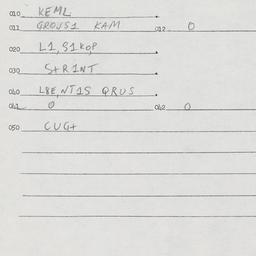 010 KEML
011 GROUS1 KAM 012 0
020 L1,S1KOP
030 S+R1NT
040 L8E,NT1S QRUS
041 0 042 0
050 CUG+